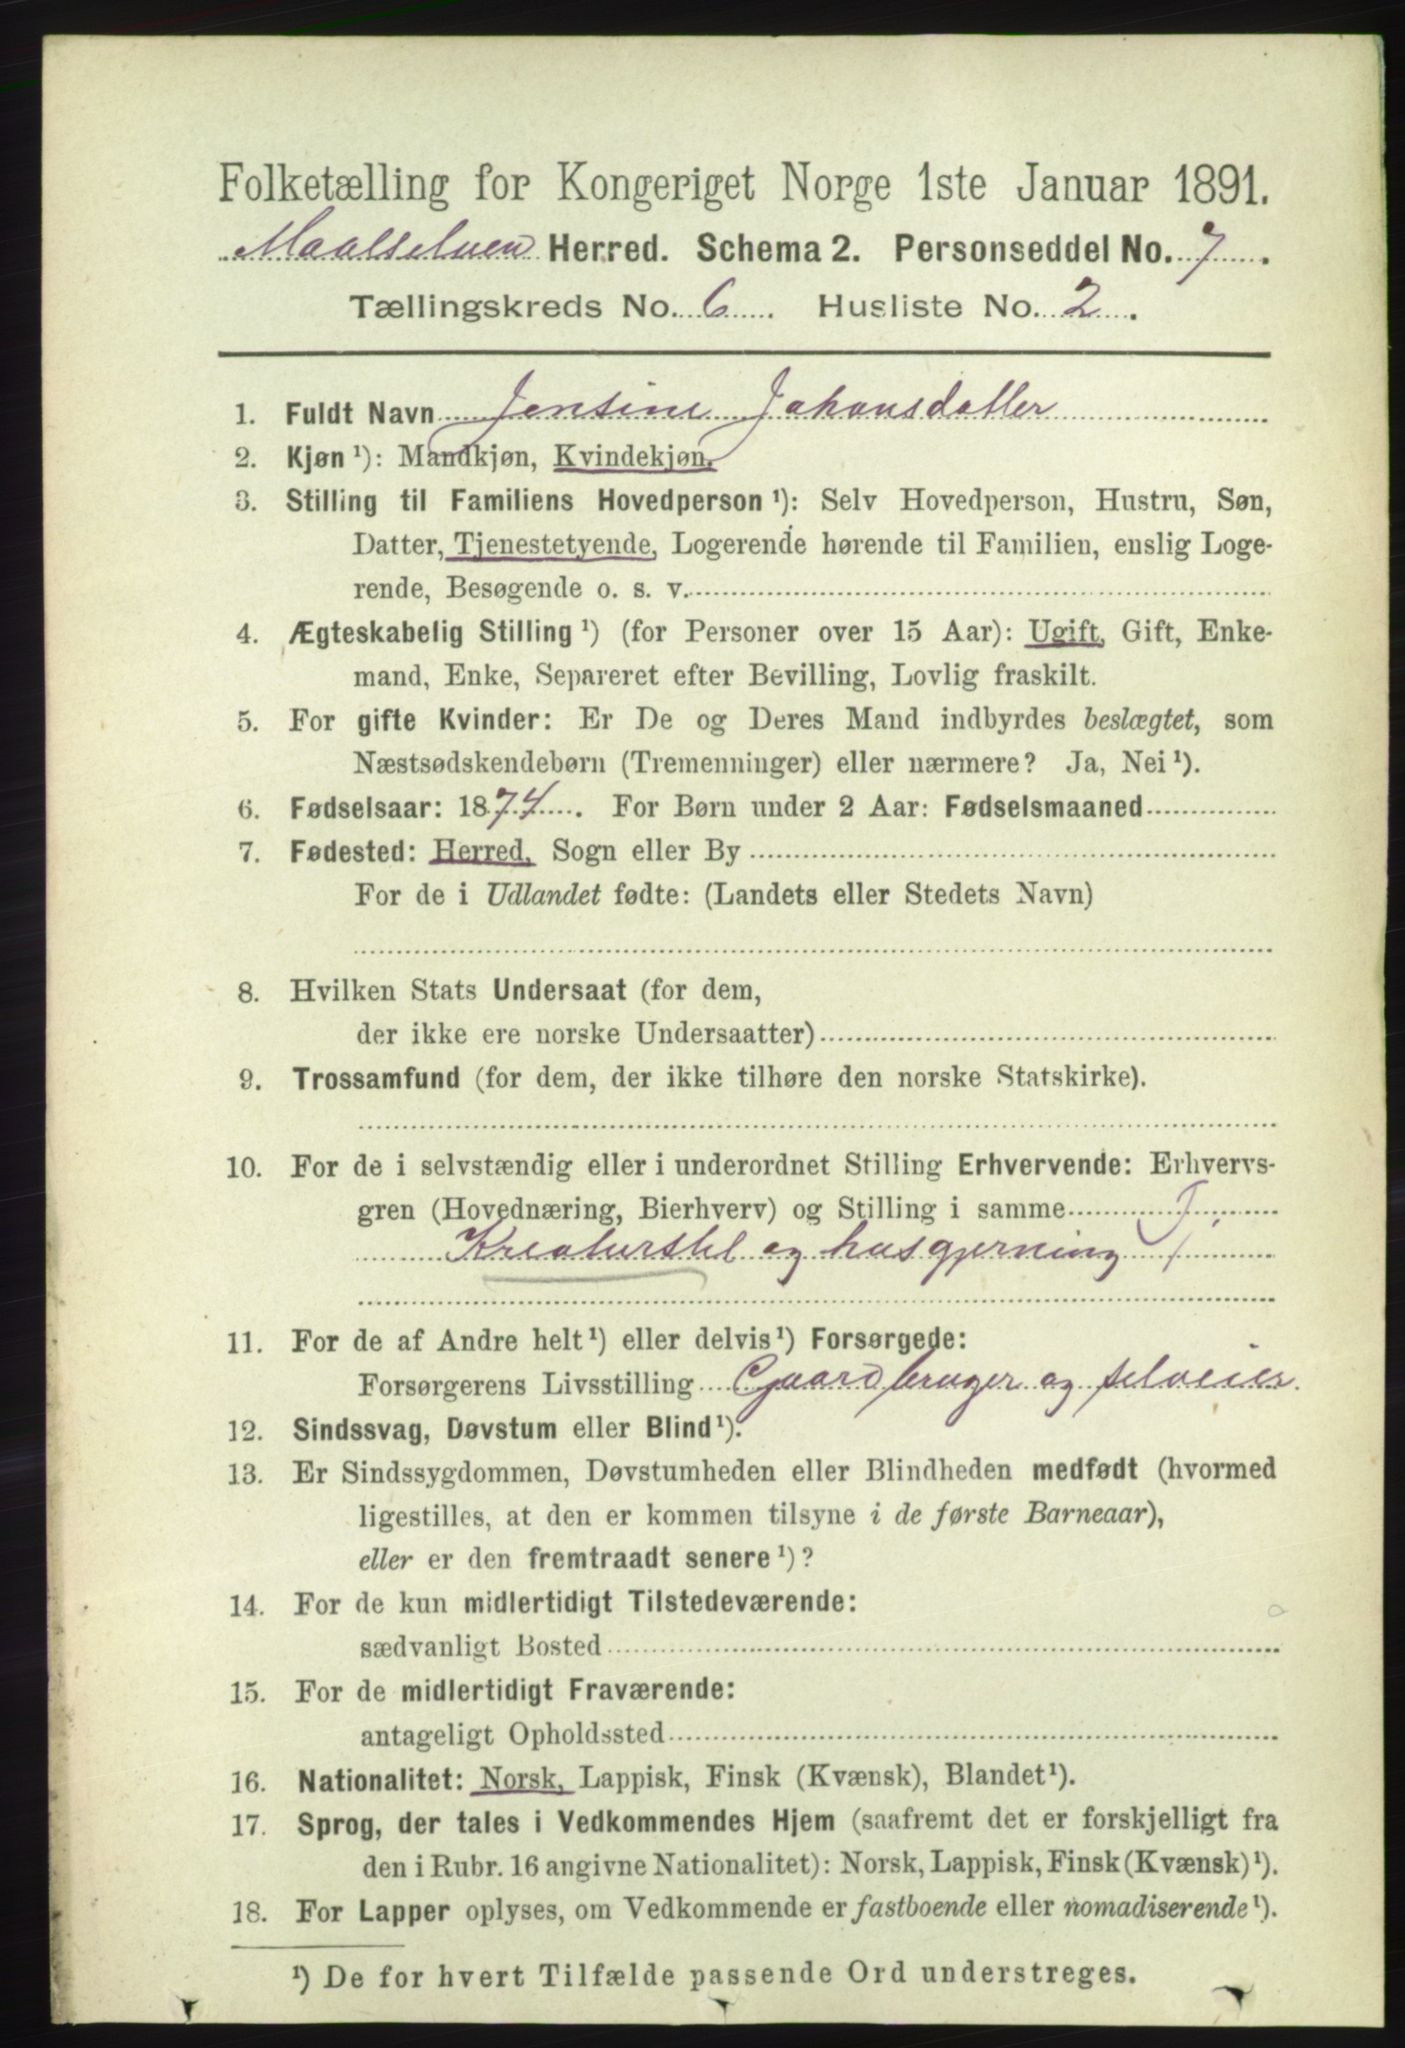 Folketælling for Kongeriget Norge 1ste Januar 1891.
Maalselven Herred. Schema 2. Personseddel No. 7.
Tællingskreds No. 6. Husliste No. 2.
1. Fuldt Navn Jensine Johansdatter
2. Kjøn ¹): Mandkjøn, Kvindekjøn.
3. Stilling til Familiens Hovedperson ¹): Selv Hovedperson, Hustru, Søn,
Datter, Tjenestetyende, Logerende hørende til Familien, enslig Loge-
rende, Besøgende o. s. v.
4. Ægteskabelig Stilling ¹) (for Personer over 15 Aar): Ugift, Gift, Enke-
mand, Enke, Separeret efter Bevilling, Lovlig fraskilt.
5. For gifte Kvinder: Er De og Deres Mand indbyrdes beslægtet, som
Næstsødskendebørn (Tremenninger) eller nærmere? Ja, Nei ¹).
6. Fødselsaar: 1874. For Børn under 2 Aar: Fødselsmaaned
7. Fødested: Herred, Sogn eller By
For de i Udlandet fødte: (Landets eller Stedets Navn)
8. Hvilken Stats Undersaat (for dem,
der ikke ere norske Undersaatter)
9. Trossamfund (for dem, der ikke tilhøre den norske Statskirke).
10. For de i selvstændig eller i underordnet Stilling Erhvervende: Erhvervs-
gren (Hovednæring, Bierhverv) og Stilling i samme
Kreaturstel og husgjerning
11. For de af Andre helt ¹) eller delvis ¹) Forsørgede:
Forsørgerens Livsstilling Gaardbruger og selveier.
12. Sindssvag, Døvstum eller Blind ¹).
13. Er Sindssygdommen, Døvstumheden eller Blindheden medfødt (hvormed
ligestilles, at den er kommen tilsyne i de første Barneaar),
eller er den fremtraadt senere ¹)?
14. For de kun midlertidigt Tilstedeværende:
sædvanligt Bosted
15. For de midlertidigt Fraværende:
antageligt Opholdssted
16. Nationalitet: Norsk, Lappisk, Finsk (Kvænsk), Blandet ¹).
17. Sprog, der tales i Vedkommendes Hjem (saafremt det er forskjelligt fra
den i Rubr. 16 angivne Nationalitet): Norsk, Lappisk, Finsk (Kvænsk) ¹).
18. For Lapper oplyses, om Vedkommende er fastboende eller nomadiserende ¹).
¹) De for hvert Tilfælde passende Ord understreges.